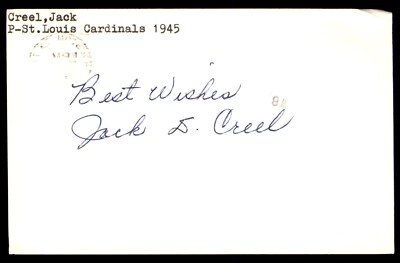 Creel,Jack
P-St.Louis Cardinals 1945
Best Wishes
Jack D. Creel